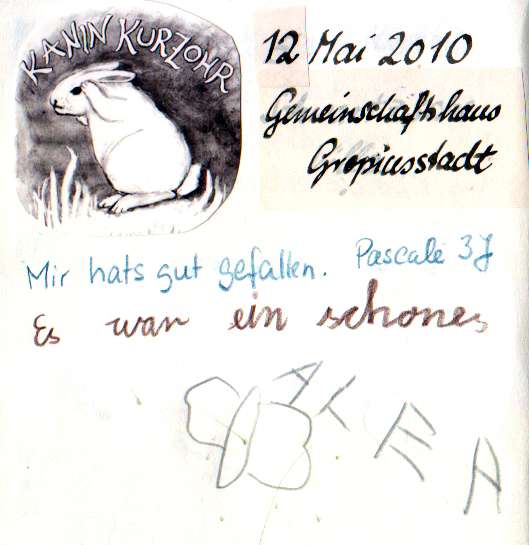 KANIN KURZOHR
12 Mai 2010
Gemeinschaftshaus
Gropiusstadt
Mir hats gut gefallen. Pascale 3J
Es war ein schönes
ALEA